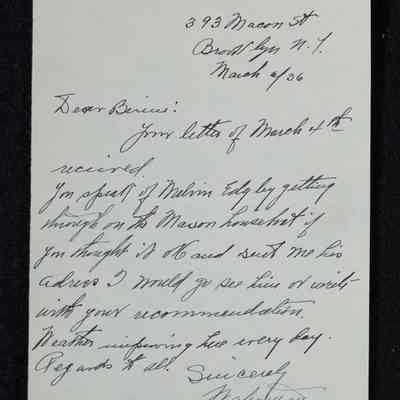 393 Macon St
Brooklyn N.Y.
March 6/36
Dear Birnie:
Your letter of March 4th
recieved.
You speak of Melvin Edgley getting
through on the Mason house but if
you thought it OK and sent me his
adress I would go see him or write
with your recommendation.
Weather improving here every day.
Regards to all.
Sincerely